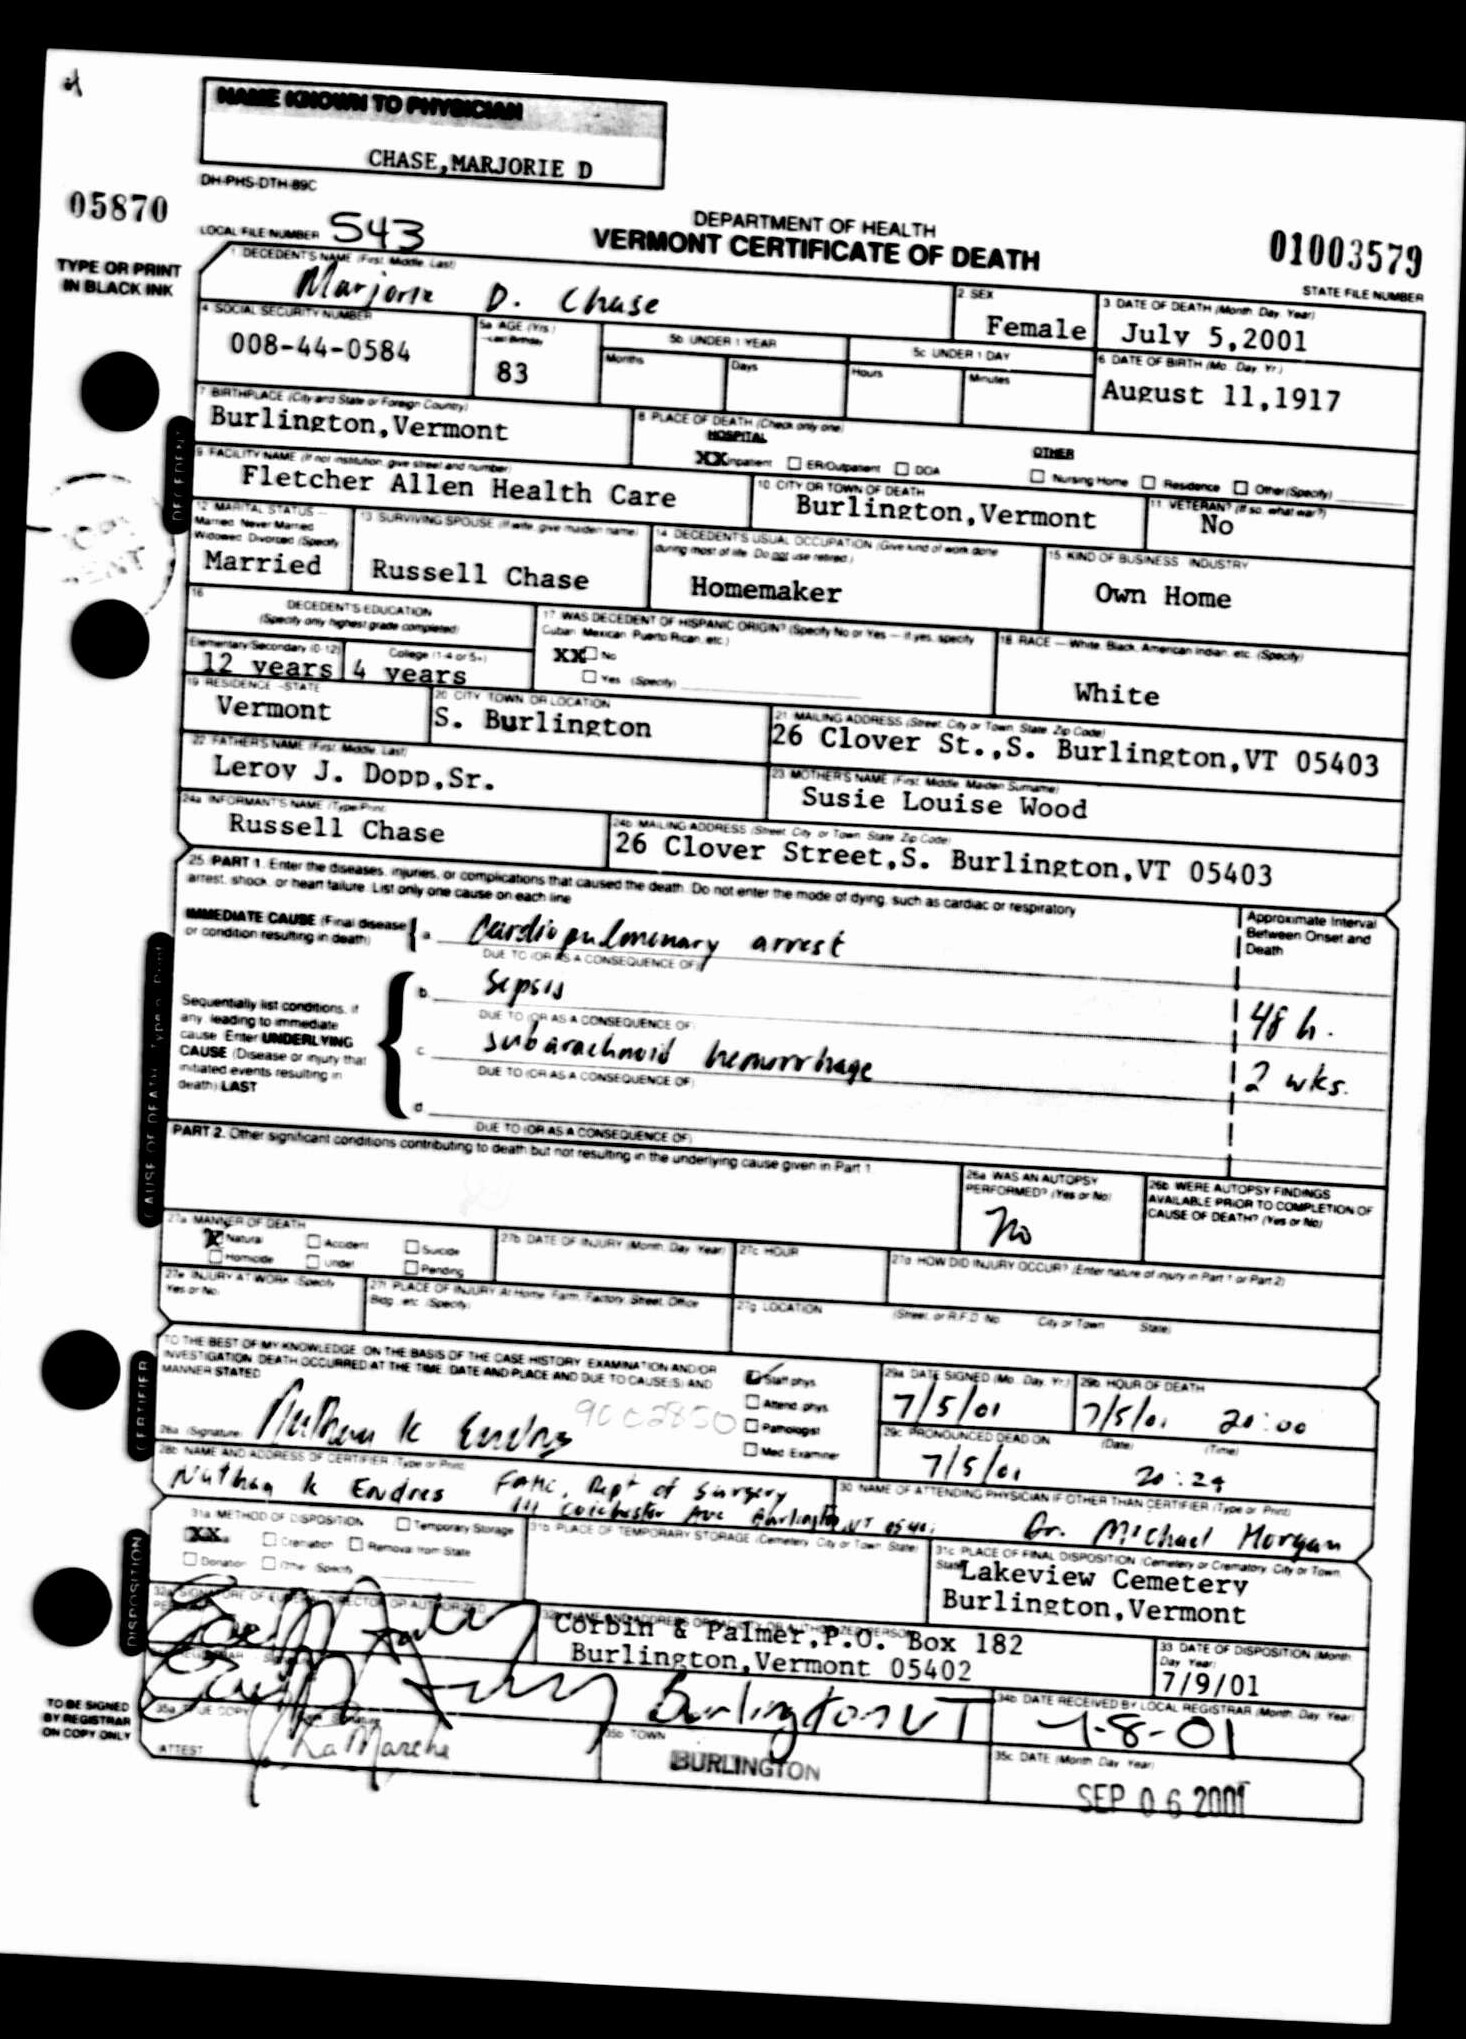 NAME KNOWN TO PHYSICIAN
CHASE,MARJORIE D
DH-PHS-DTH-89C
05870
LOCAL FILE NUMBER 543
DEPARTMENT OF HEALTH
VERMONT CERTIFICATE OF DEATH
01003579
STATE FILE NUMBER
TYPE OR PRINT
IN BLACK INK
1 DECEDENT'S NAME (First, Middle, Last)
Marjorie D. Chase
2 SEX
Female
3 DATE OF DEATH (Month, Day, Year)
July 5,2001
4 SOCIAL SECURITY NUMBER
008-44-0584
5a AGE (Yrs.)
Last Birthday
83
5b UNDER 1 YEAR
Months
Days
5c UNDER 1 DAY
Hours
Minutes
6 DATE OF BIRTH (Mo. Day, Yr.)
August 11,1917
7 BIRTHPLACE (City and State or Foreign Country)
Burlington,Vermont
8 PLACE OF DEATH (Check only one)
HOSPITAL
XX Inpatient ER/Outpatient DOA
OTHER
Nursing Home Residence Other (Specify)
DECEDENT
9 FACILITY NAME (If not institution, give street and number)
Fletcher Allen Health Care
10 CITY OR TOWN OF DEATH
Burlington,Vermont
11 VETERAN? (If so, what war?)
No
12 MARITAL STATUS —
Married, Never Married
Widowed, Divorced (Specify
Married
13 SURVIVING SPOUSE (If wife, give maiden name)
Russell Chase
14 DECEDENT'S USUAL OCCUPATION (Give kind of work done
during most of life. Do not use retired.)
Homemaker
15 KIND OF BUSINESS INDUSTRY
Own Home
16 DECEDENT'S EDUCATION
(Specify only highest grade completed)
Elementary/Secondary (0-12)
College (1-4 or 5+)
12 years 4 years
17 WAS DECEDENT OF HISPANIC ORIGIN? (Specify No or Yes — If yes, specify
Cuban, Mexican, Puerto Rican, etc.)
XX No
Yes (Specify)
18 RACE — White, Black, American Indian, etc. (Specify)
White
19 RESIDENCE - STATE
Vermont
20 CITY, TOWN, OR LOCATION
S. Burlington
21 MAILING ADDRESS (Street, City or Town, State, Zip Code)
26 Clover St.,S. Burlington,VT 05403
22 FATHER'S NAME (First, Middle, Last)
Leroy J. Dopp,Sr.
23 MOTHER'S NAME (First, Middle, Maiden Surname)
Susie Louise Wood
24a INFORMANT'S NAME (Type/Print)
Russell Chase
24b MAILING ADDRESS (Street, City or Town, State, Zip Code)
26 Clover Street,S. Burlington,VT 05403
25 PART 1. Enter the diseases, injuries, or complications that caused the death. Do not enter the mode of dying, such as cardiac or respiratory
arrest, shock, or heart failure. List only one cause on each line
Approximate Interval
Between Onset and
Death
IMMEDIATE CAUSE (Final disease
or condition resulting in death)
a. Cardiopulmonary arrest
DUE TO (OR AS A CONSEQUENCE OF)
b. Sepsis 48 h.
DUE TO (OR AS A CONSEQUENCE OF)
c. subarachnoid hemorrhage 2 wks.
DUE TO (OR AS A CONSEQUENCE OF)
d.
DUE TO (OR AS A CONSEQUENCE OF)
Sequentially list conditions, if
any, leading to immediate
cause. Enter UNDERLYING
CAUSE (Disease or injury that
initiated events resulting in
death) LAST
PART 2. Other significant conditions contributing to death but not resulting in the underlying cause given in Part 1
26a WAS AN AUTOPSY
PERFORMED? (Yes or No)
No
26b WERE AUTOPSY FINDINGS
AVAILABLE PRIOR TO COMPLETION OF
CAUSE OF DEATH? (Yes or No)
27a MANNER OF DEATH
X Natural Accident Suicide
Homicide Undet Pending
27b DATE OF INJURY (Month, Day, Year)
27c HOUR
27d HOW DID INJURY OCCUR? (Enter nature of injury in Part 1 or Part 2)
27e INJURY AT WORK (Specify
Yes or No)
27f PLACE OF INJURY At Home, Farm, Factory, Street, Office
Bldg., etc. (Specify)
27g LOCATION (Street or R.F.D. No. City or Town State)
CERTIFIER
TO THE BEST OF MY KNOWLEDGE, ON THE BASIS OF THE CASE HISTORY, EXAMINATION AND/OR
INVESTIGATION, DEATH OCCURRED AT THE TIME, DATE AND PLACE AND DUE TO CAUSE(S) AND
MANNER STATED
28a (Signature) Nathan K Endres
Staff phys.
Attend. phys.
Pathologist
Med. Examiner
29a DATE SIGNED (Mo., Day, Yr.)
7/5/01
29b HOUR OF DEATH
7/5/01 20:00
29c PRONOUNCED DEAD ON (Date) (Time)
7/5/01 20:24
28b NAME AND ADDRESS OF CERTIFIER (Type or Print)
Nathan K Endres FAHC, Dept of Surgery
111 Colchester Ave Burlington, VT
30 NAME OF ATTENDING PHYSICIAN IF OTHER THAN CERTIFIER (Type or Print)
Dr. Michael Morgan
DISPOSITION
31a METHOD OF DISPOSITION
XX Temporary Storage
Cremation Removal from State
Donation Other (Specify)
31b PLACE OF TEMPORARY STORAGE (Cemetery, City or Town, State)
31c PLACE OF FINAL DISPOSITION (Cemetery or Crematory, City or Town,
State)
Lakeview Cemetery
Burlington,Vermont
32a SIGNATURE OF FUNERAL DIRECTOR OR AUTHORIZED
Corbin & Palmer,P.O. Box 182
Burlington,Vermont 05402
33 DATE OF DISPOSITION (Month,
Day, Year)
7/9/01
Burlington VT
34b DATE RECEIVED BY LOCAL REGISTRAR (Month, Day, Year)
7-8-01
TO BE SIGNED
BY REGISTRAR
ON COPY ONLY
35a TRUE COPY
ATTEST
LaMarche
35b TOWN
BURLINGTON
35c DATE (Month, Day, Year)
SEP 06 2001